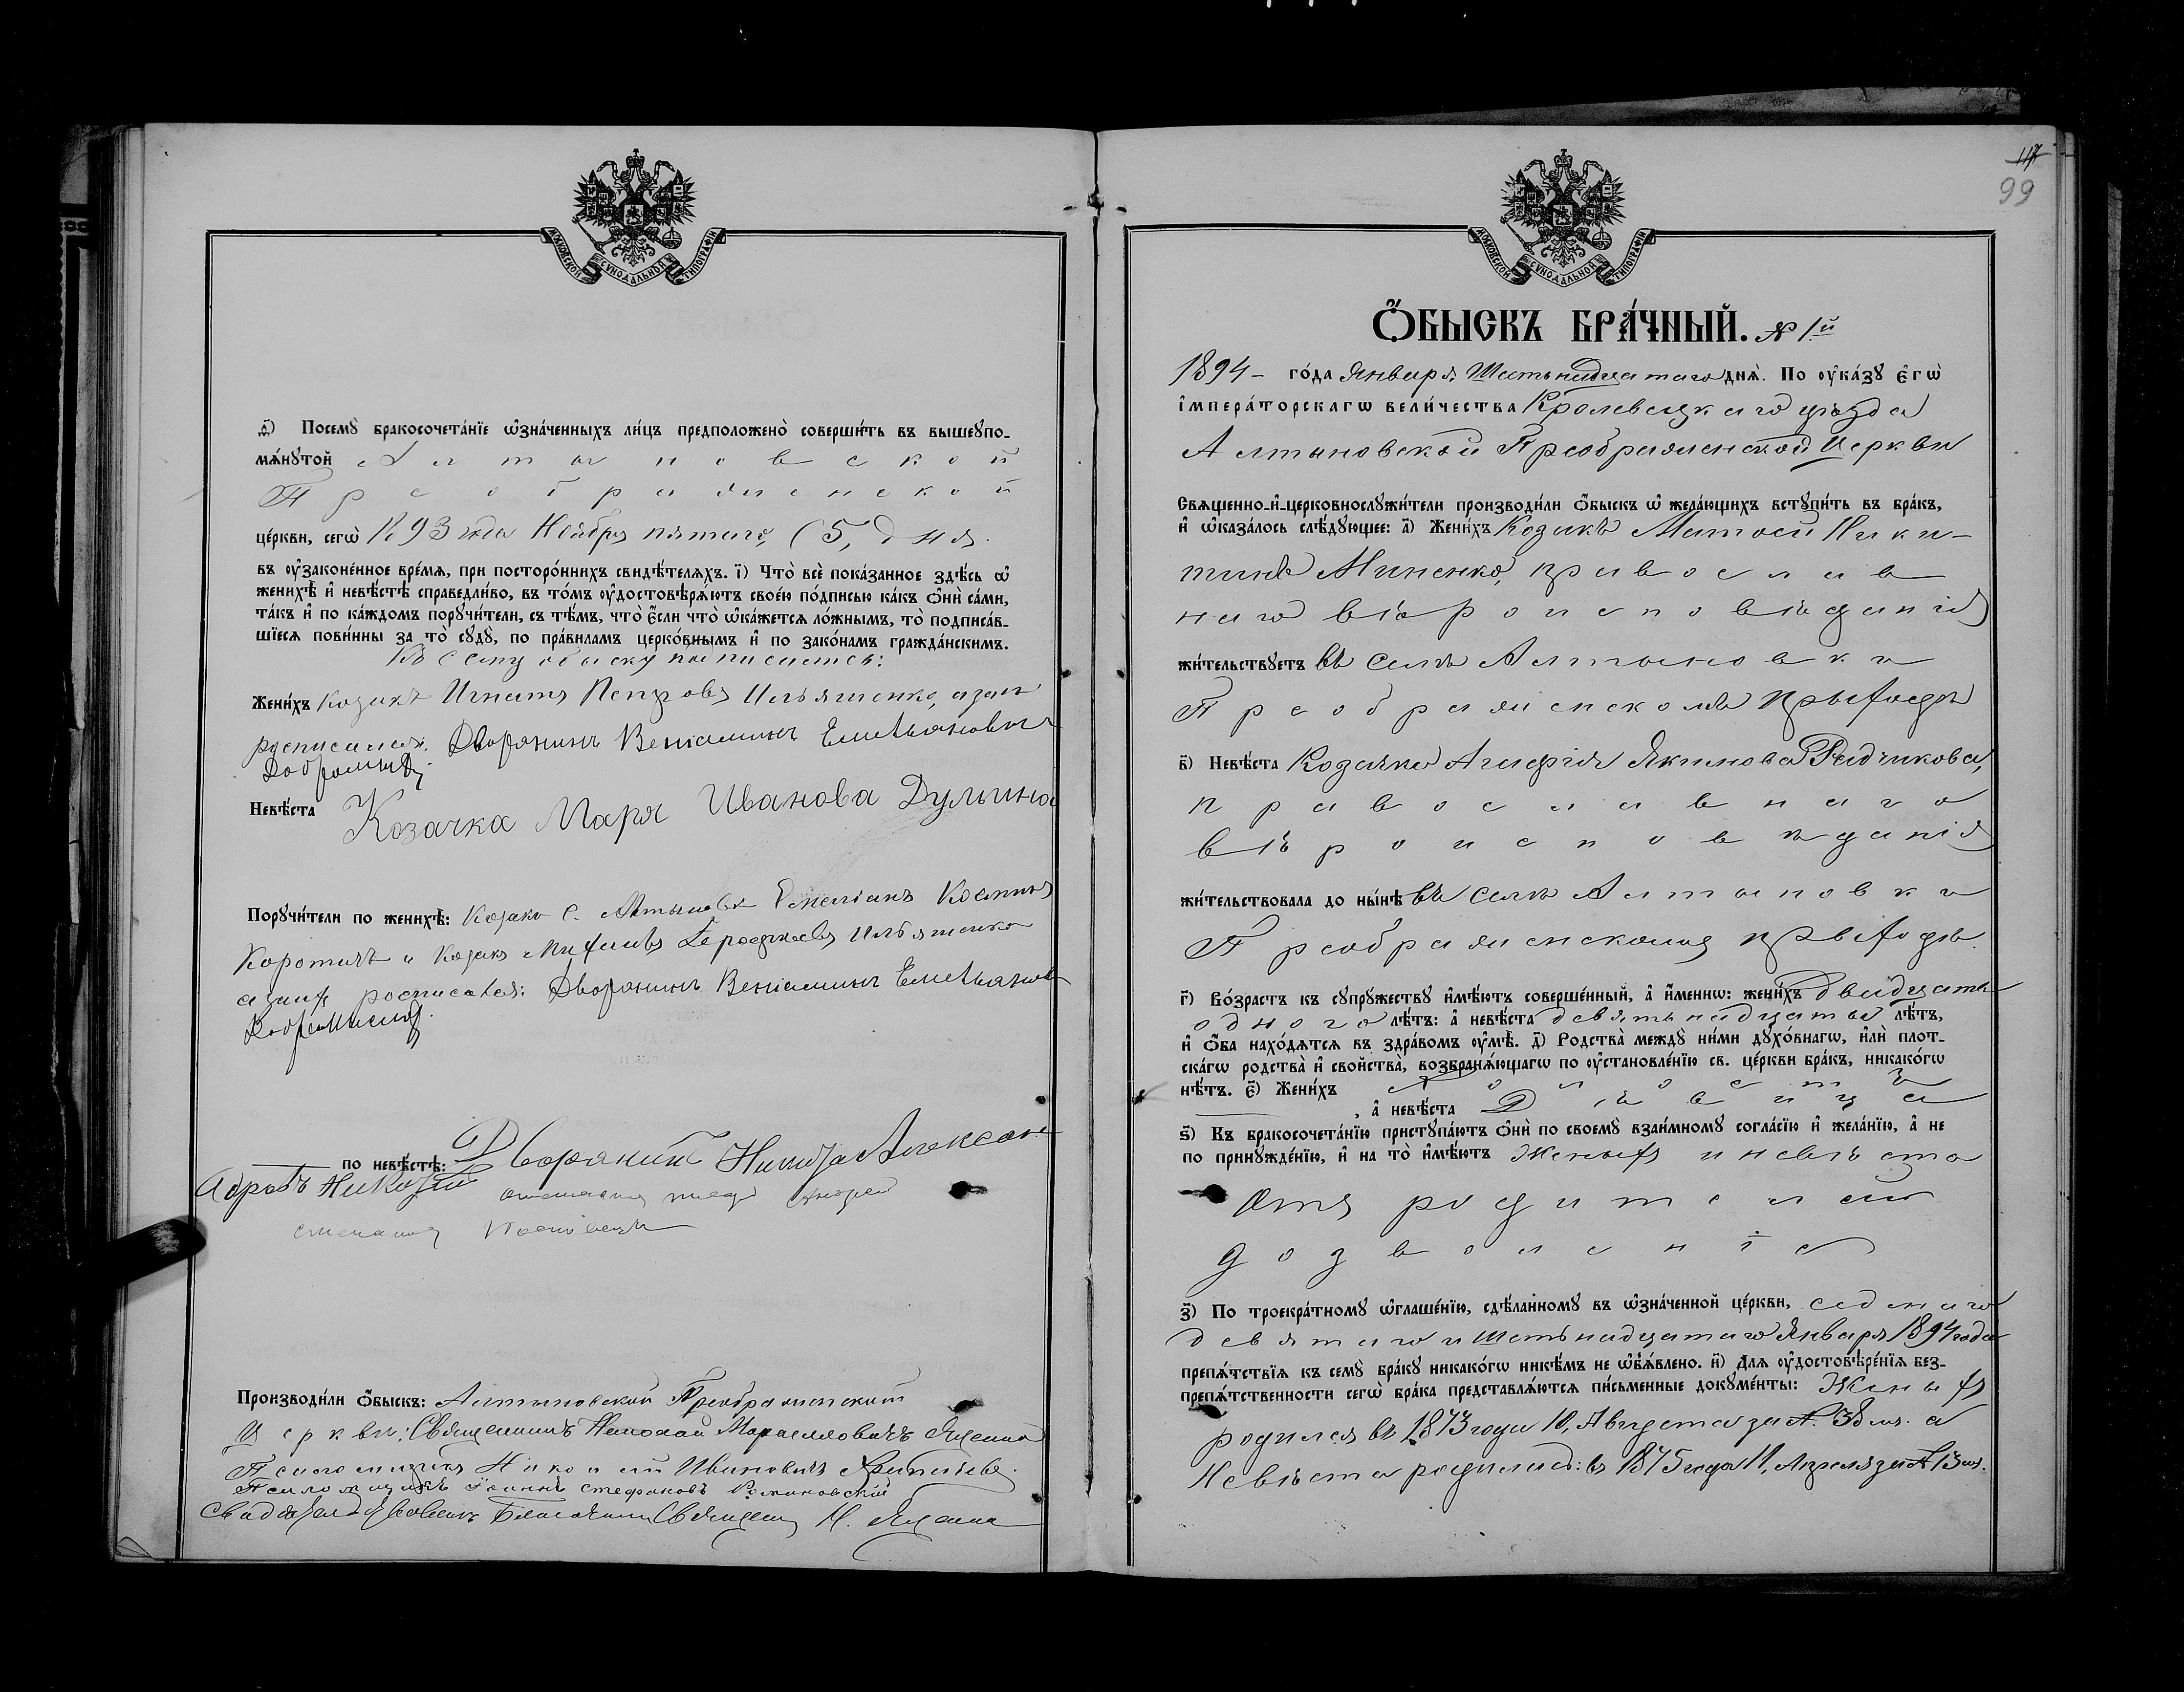 МОСКОВСКОЙ СѴНОДАЛЬНОЙ ТИПОГРАФІИ
ѳ҃) Посемꙋ̀ бракосочета́нїе ѡ҆зна́ченныхъ ли́цъ предположено̀ соверши́ть въ вышеꙋпо-
мѧ́нꙋтой Алтыновской
Преображенской
це́ркви, сегѡ̀ 1893 года Ноября пятаго, (5, дня.
въ оу҆зако́ненное вре́мѧ, при посторо́ннихъ свидѣ́телѧхъ. і҃) Что̀ всѐ пока́занное здѣ́сь ѡ҆
женихѣ̀ и҆ невѣ́стѣ справедли́во, въ то́мъ оу҆достовѣрѧ́ютъ свое́ю по́дписью ка́къ ѻ҆нѝ са́ми,
та́къ и҆ по ка́ждомъ порꙋчи́тели, съ тѣ́мъ, что̀ є҆́сли что̀ ѡ҆ка́жетсѧ ло́жнымъ, то̀ подписа́в-
шїесѧ пови́нны за то̀ сꙋдꙋ̀, по пра́виламъ церко́внымъ и҆ по зако́намъ гражда́нскимъ.
Къ сему обыску
Жени́хъ Козакъ Игнатъ Петровъ Ильяшенко,
росписался: Дворянинъ Веніаминъ Емельяновъ
Невѣ́ста Козачка Маря Иванова
Порꙋчи́тели по женихѣ̀: Козакъ с. Алтыновки Емеліанъ Косминъ
и Козакъ Ильяшенко
росписался: Дворянинъ Веніаминъ Емельяновъ
по невѣ́стѣ: Дворянинъ Никита
Производи́ли ѻ҆́быскъ: Алтыновской Преображенской
Церкви: Священникъ Николай
Псаломщикъ Николай Ивановичъ
Псаломщикъ Іоаннъ Стефановъ
99
МОСКОВСКОЙ СѴНОДАЛЬНОЙ ТИПОГРАФІИ
Ѻ҆́БЫСКЪ БРА́ЧНЫЙ. № 1й
1894 – го́да Января Шестнадцатаго днѧ̀. По оу҆ка́зꙋ є҆гѡ̀
і҆мпера́торскагѡ вели́чества Кролевецкаго уѣзда
Алтыновской Преображенской Церкви
Свѧще́нно-и҆-церковнослꙋжи́тели производи́ли ѻ҆́быскъ ѡ҆ жела́ющихъ встꙋпи́ть въ бра́къ,
и҆ ѡ҆каза́лось слѣ́дꙋющее: а҃) Жени́хъ Козакъ Матөей Ники-
тинъ Миненко, православ
наго вѣроисповѣданія
жи́тельствꙋетъ въ селѣ Алтыновки
Преображенскомъ приходѣ
в҃) Невѣ́ста Козачка Агафія Якимова Радчикова,
православнаго
вѣроисповѣданія
жи́тельствовала до ны́нѣ въ селѣ Алтыновки
Преображенскомъ приходѣ.
г҃) Во́зрастъ къ сꙋпрꙋ́жествꙋ и҆мѣ́ютъ соверше́нный, а҆ и҆́менно: жени́хъ двадцать
одного лѣ́тъ: а҆ невѣ́ста девятнадцати лѣ́тъ,
и҆ ѻ҆́ба нахо́дѧтсѧ въ здра́вомъ оу҆мѣ̀. д҃) Родства̀ междꙋ̀ ни́ми дꙋхо́внагѡ, и҆лѝ пло́т-
скагѡ родства̀ и҆ сво́йства̀, возбранѧ́ющагѡ по оу҆становле́нїю св. це́ркви бра́къ, никако́гѡ
нѣ́тъ. є҃) Жени́хъ холостъ
, а҆ невѣ́ста Дѣвица
ѕ҃) Къ бракосочета́нїю пристꙋпа́ютъ ѻ҆нѝ по своемꙋ̀ взаи́мномꙋ согла́сїю и҆ жела́нїю, а҆ не
по принꙋжде́нїю, и҆ на то̀ и҆мѣ́ютъ Женихъ и невѣста
отъ родителей
дозволеніе
з҃) По троекра́тномꙋ ѡ҆глаше́нїю, сдѣ́ланномꙋ въ ѡ҆зна́ченной це́ркви, седмаго
девятаго и Шестнадцатаго Января 1894 года
препѧ́тствїѧ къ семꙋ̀ бра́кꙋ никако́гѡ никѣ́мъ не ѡ҆б̾ѧ́влено. и҃) Длѧ оу҆достовѣре́нїѧ без-
препѧ́тственности сегѡ̀ бра́ка представлѧ́ютсѧ пи́сьменные докꙋме́нты: Женихъ
родился въ 1873 года 10, Августа за № 38 м. а
Невѣста родилась: въ 1875 года 11, Апреля за № 13 м.